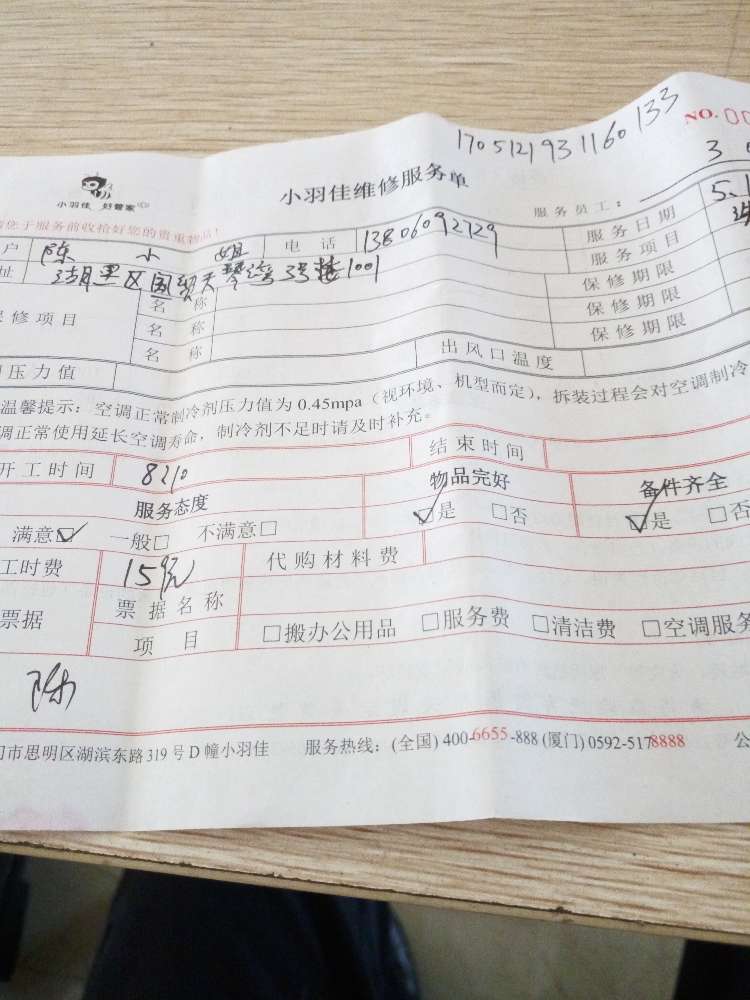 1705121931160133
NO. 00
小羽佳 好管家
小羽佳维修服务单
服务员工：
您于服务前收拾好您的贵重物品!
户 陈小姐 电话 13806092729 服务日期 5.1
址 湖里区国贸天琴湾3号楼1001 服务项目
保修项目 名称 保修期限
名称 保修期限
名称 保修期限
压力值 出风口温度
温馨提示：空调正常制冷剂压力值为0.45mpa（视环境、机型而定），拆装过程会对空调制冷
调正常使用延长空调寿命，制冷剂不足时请及时补充。
开工时间 8210 结束时间
服务态度 物品完好 备件齐全
满意☑ 一般□ 不满意□ ☑是 □否 ☑是 □否
工时费 代购材料费
票据 票据名称
项目 □搬办公用品 □服务费 □清洁费 □空调服务
陈
门市思明区湖滨东路319号D幢小羽佳 服务热线：(全国) 400-6655-888 (厦门) 0592-5178888 公